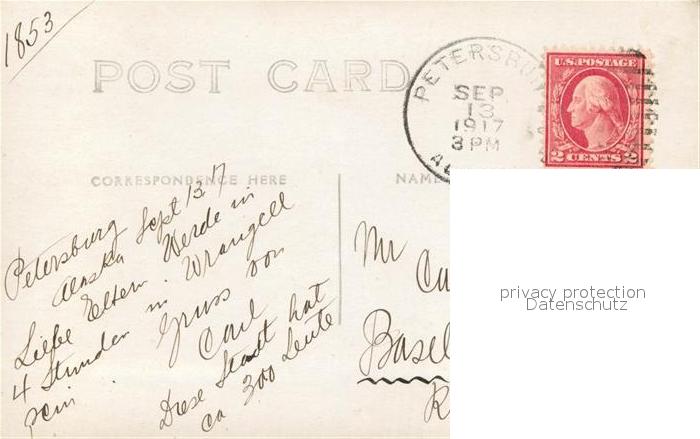 1853
POST CARD
PETERSBU
SEP
13
1917
3 PM
U.S. POSTAGE
2 CENTS 2
CORRESPONDENCE HERE
NAM
Petersburg
Alaska Sept 13 17
Liebe Eltern. Werde in
4 Stunden in Wrangell
sein. Gruss von
Carl
Diese Stadt hat
ca 300 Leute
Mr Ca
Basel
R
privacy protection
Datenschutz